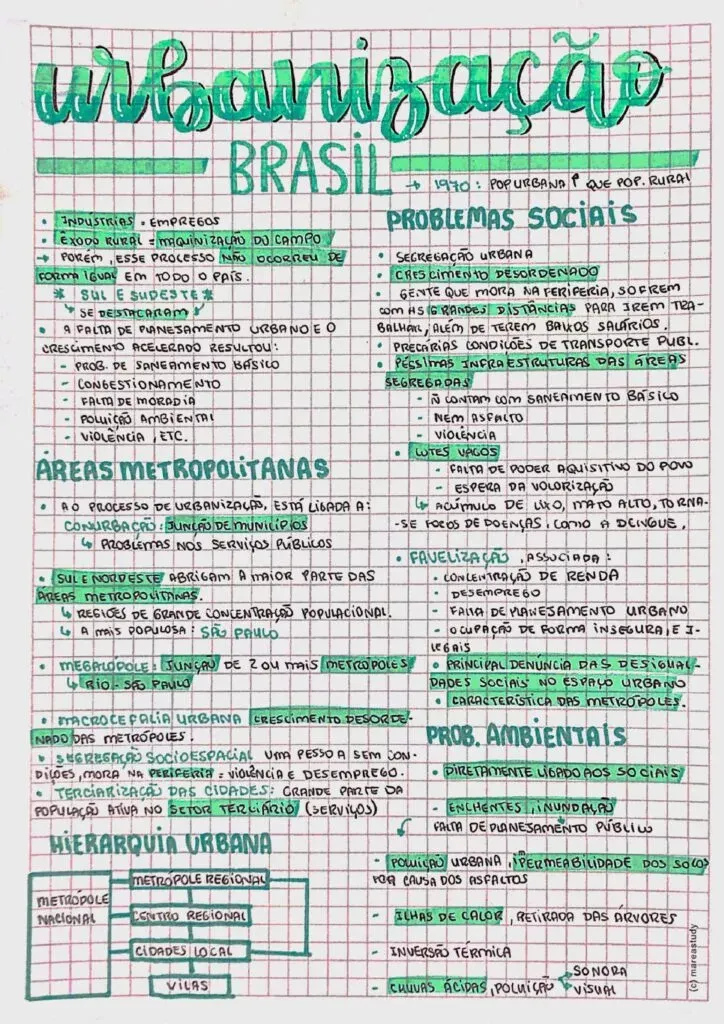 urbanização
BRASIL
→ 1970: POP URBANA ↑ QUE POP. RURAL
• INDUSTRIAS • EMPREGOS
• ÊXODO RURAL = MAQUINIZAÇÃO DO CAMPO
→ PORÉM, ESSE PROCESSO NÃO OCORREU DE
FORMA IGUAL EM TODO O PAÍS.
* SUL E SUDESTE *
↳ SE DESTACARAM
• A FALTA DE PLANESAMENTO URBANO E O
CRESCIMENTO ACELERADO RESULTOU:
- PROB. DE SANEAMENTO BÁSICO
- CONGESTIONAMENTO
- FALTA DE MORADIA
- POLUIÇÃO AMBIENTAL
- VIOLÊNCIA, ETC.
ÁREAS METROPOLITANAS
• AO PROCESSO DE URBANIZAÇÃO, ESTÁ LIGADA A:
CONURBAÇÃO: JUNÇÃO DE MUNICÍPIOS
↳ PROBLEMAS NOS SERVIÇOS PÚBLICOS
• SUL E NORDESTE ABRIGAM A MAIOR PARTE DAS
ÁREAS METROPOLITANAS.
↳ REGIÕES DE GRANDE CONCENTRAÇÃO POPULACIONAL.
↳ A MAIS POPULOSA: SÃO PAULO
• MEGALÓPOLE: JUNÇÃO DE 2 OU MAIS METRÓPOLES
↳ RIO - SÃO PAULO
• MACROCEFALIA URBANA CRESCIMENTO DESORDE-
NADO DAS METRÓPOLES.
• SEGREGAÇÃO SOCIOESPACIAL UMA PESSOA SEM CON-
DIÇÕES, MORA NA PERIFERIA = VIOLÊNCIA E DESEMPREGO.
• TERCIARIZAÇÃO DAS CIDADES: GRANDE PARTE DA
POPULAÇÃO ATIVA NO SETOR TERCIÁRIO (SERVIÇOS)
HIERARQUIA URBANA
METRÓPOLE
NACIONAL
METRÓPOLE REGIONAL
CENTRO REGIONAL
CIDADES LOCAL
VILAS
PROBLEMAS SOCIAIS
• SEGREGAÇÃO URBANA
• CRESCIMENTO DESORDENADO
• GENTE QUE MORA NA PERIFERIA, SOFREM
COM AS GRANDES DISTÂNCIAS PARA IREM TRA-
BALHAR, ALÉM DE TEREM BAIXOS SALÁRIOS.
• PRECÁRIAS CONDIÇÕES DE TRANSPORTE PUBL.
• PÉSSIMAS INFRAESTRUTURAS DAS ÁREAS
SEGREGADAS
- Ñ CONTAM COM SANEAMENTO BÁSICO
- NEM ASFALTO
- VIOLÊNCIA
• LOTES VAGOS
- FALTA DE PODER AQUISITIVO DO POVO
- ESPERA DA VOLORIZAÇÃO
↳ ACÚMULO DE LIXO, MATO ALTO, TORNA-
-SE FOCOS DE DOENÇAS, COMO A DENGUE.
• FAVELIZAÇÃO, ASSOCIADA:
- CONCENTRAÇÃO DE RENDA
- DESEMPREGO
- FALTA DE PLANESAMENTO URBANO
- OCUPAÇÃO DE FORMA INSEGURA, E I-
LEGAIS
• PRINCIPAL DENÚNCIA DAS DESIGUAL-
DADES SOCIAIS NO ESPAÇO URBANO
• CARACTERÍSTICA DAS METRÓPOLES.
PROB. AMBIENTAIS
• DIRETAMENTE LIGADO AOS SOCIAIS
- ENCHENTES, INUNDAÇÃO
FALTA DE PLANESAMENTO PÚBLICO
- POLUIÇÃO URBANA, IMPERMEABILIDADE DOS SOLOS
POR CAUSA DOS ASFALTOS
- ILHAS DE CALOR, RETIRADA DAS ÁRVORES
- INVERSÃO TÉRMICA
- CHUVAS ÁCIDAS, POLUIÇÃO
SONORA
VISUAL
(c) mareastudy